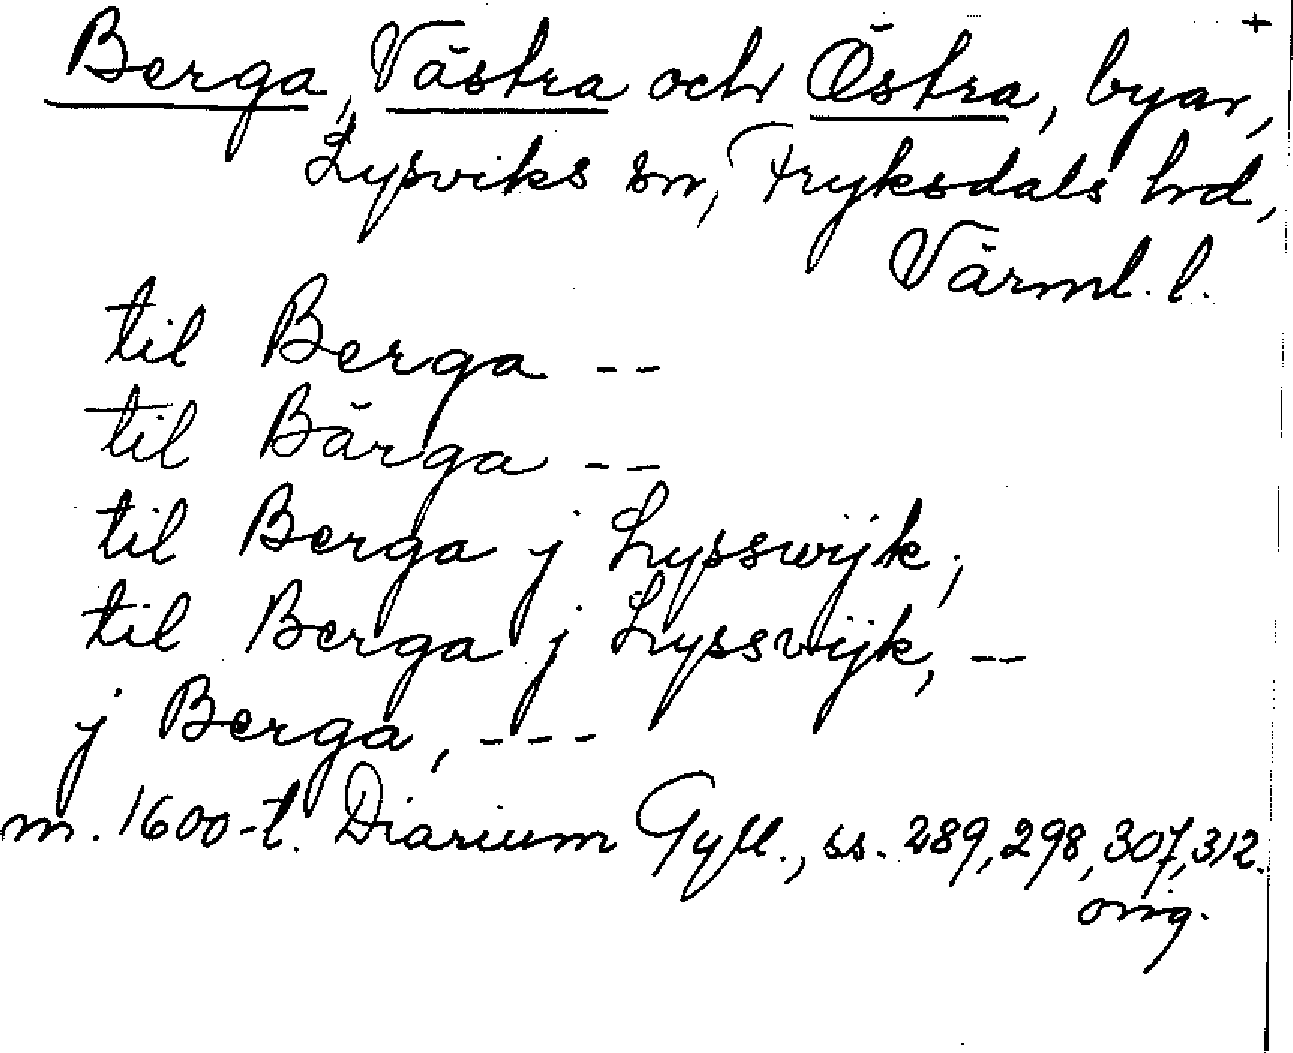 +
Berga, Västra och Östra, byar,
Lysviks sn, Fryksdals hd,
Värml. l.
til Berga --
til Bärga --
til Berga j Lysswijk,
til Berga j Lyssvijk, --
j Berga, ---
m. 1600-t. Diarium Gyll., ss. 289, 298, 307, 312.
orig.